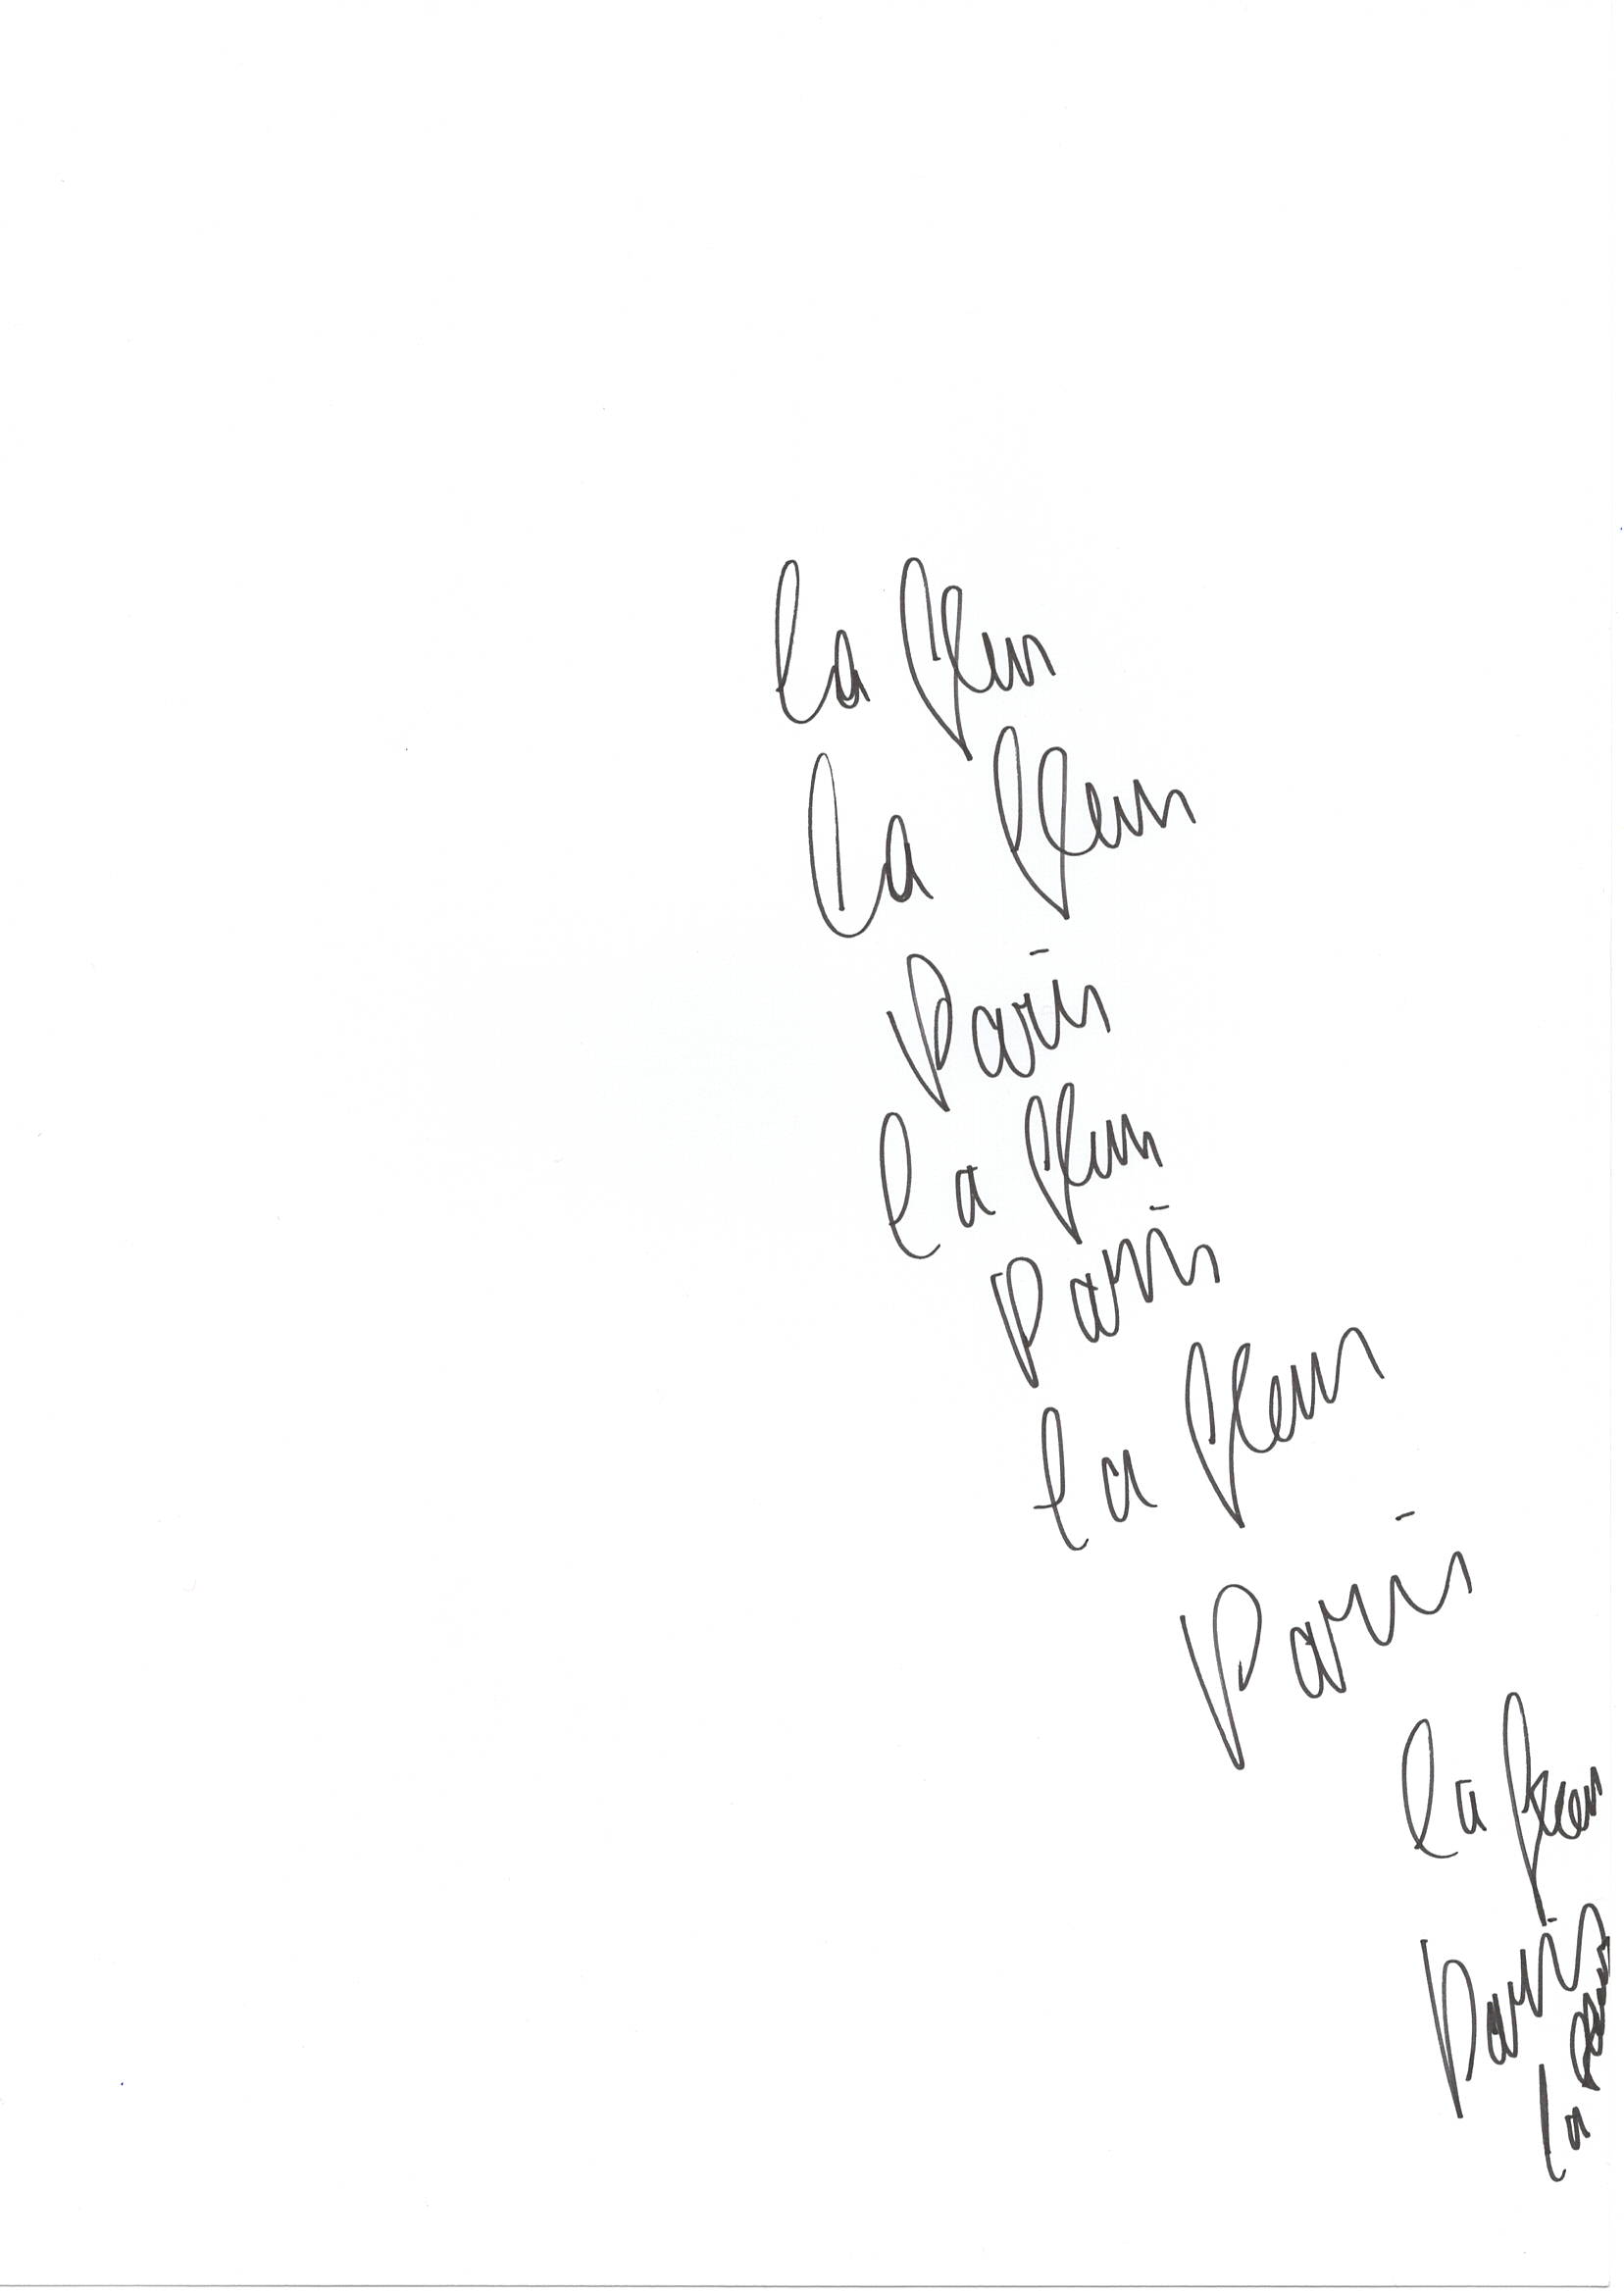 la fleur
la fleur
Paris
la fleur
Paris
la fleur
Paris
la fleur
Paris
la fleur